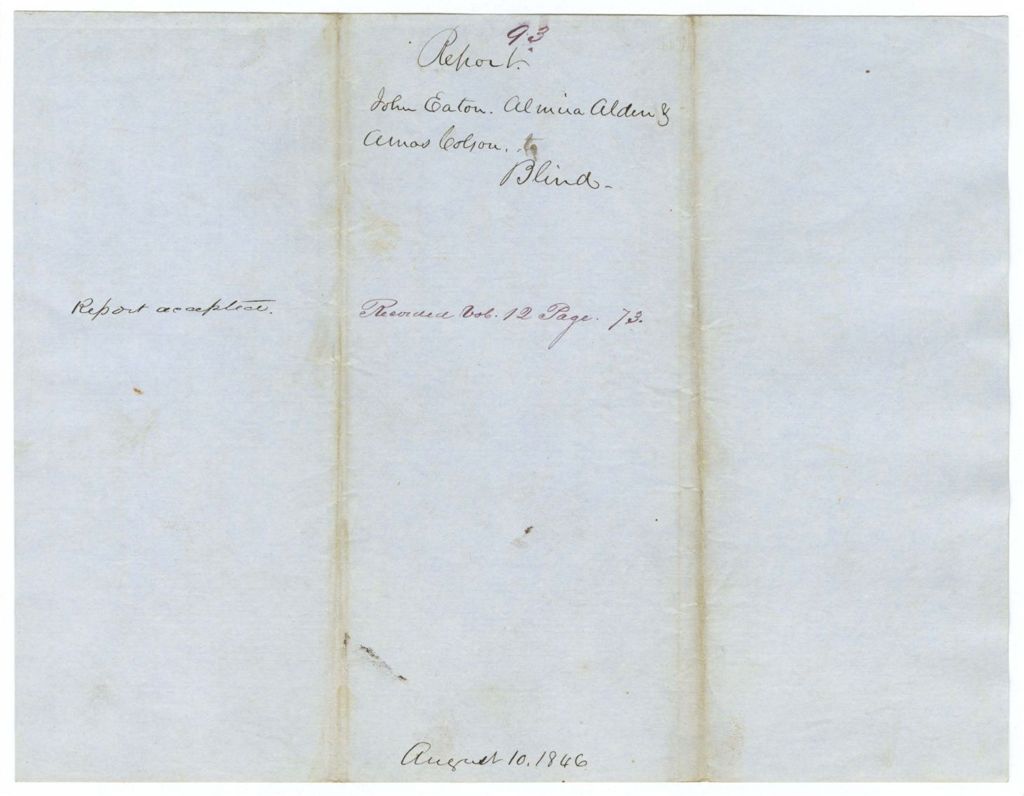 93
Report.
John Eaton. Almira Alden &
Amos Colson. to
Blind.
Report accepted.
Recorded Vol. 12 Page. 73.
August 10. 1846